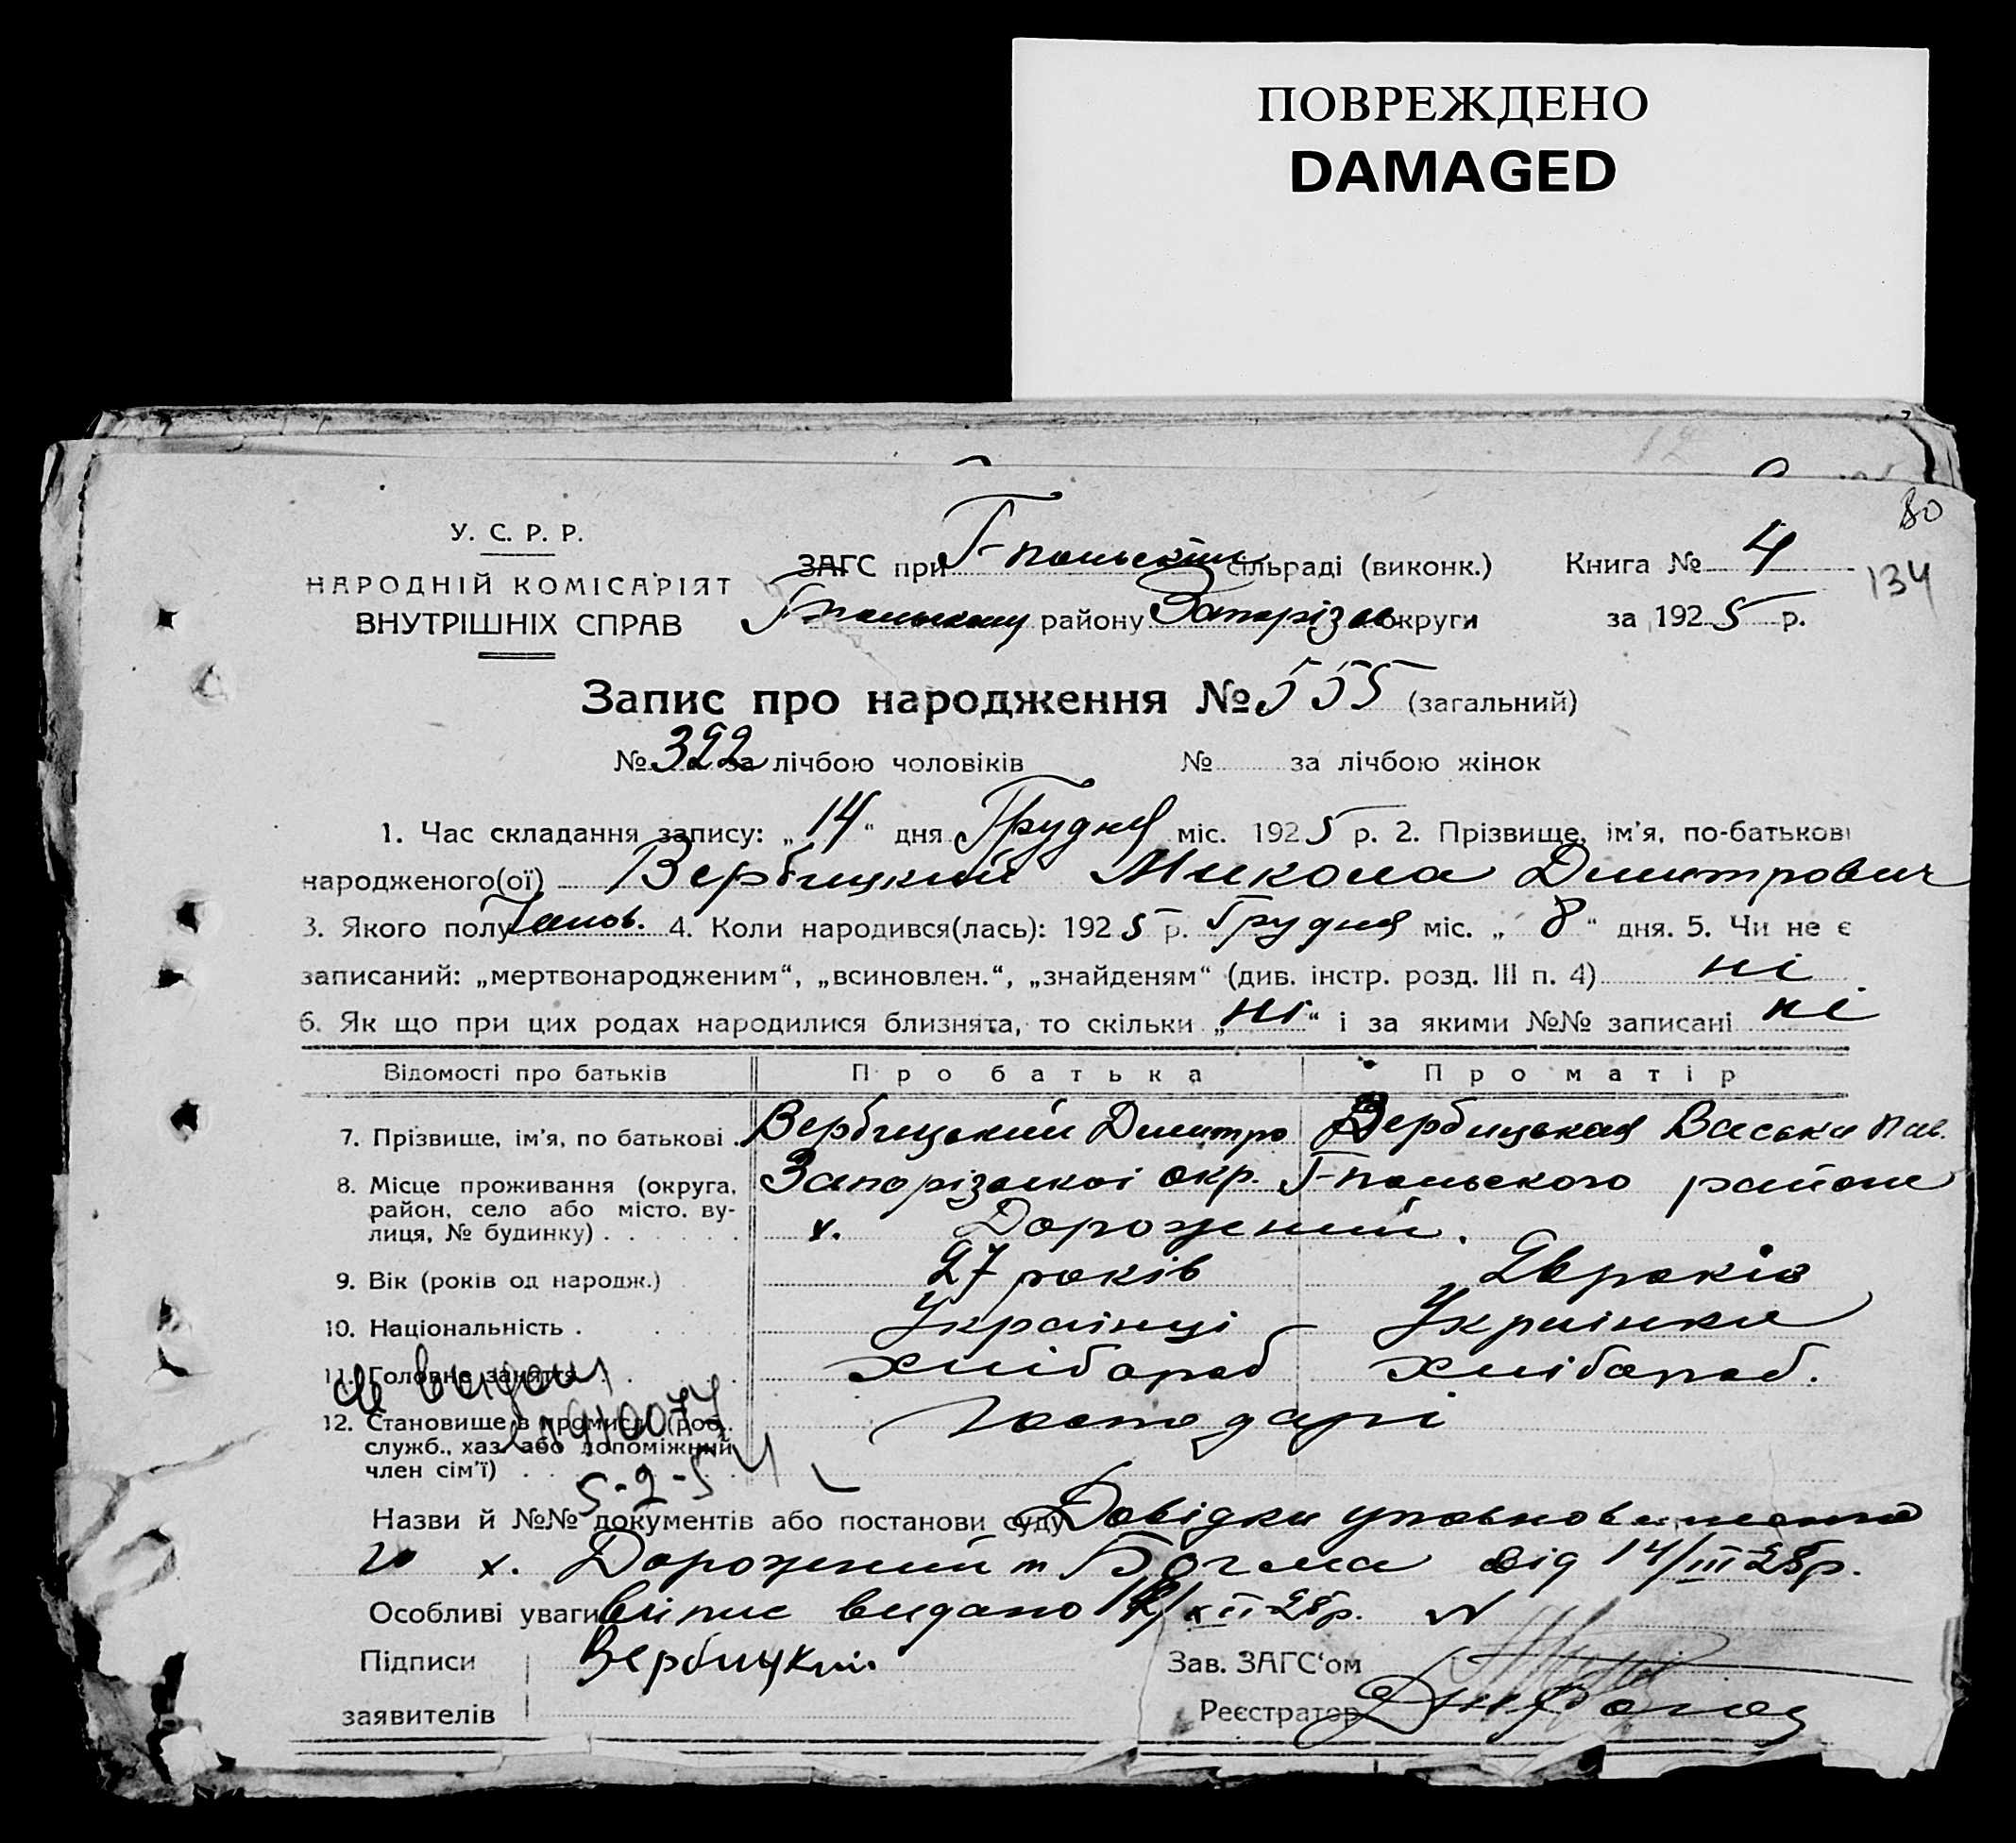 ПОВРЕЖДЕНО
DAMAGED
80
134
У. С. Р. Р.
НАРОДНІЙ КОМІСАРІЯТ
ВНУТРІШНІХ СПРАВ
ЗАГС при Г-польськім сільраді (виконк.) Книга № 4
Г-польському району Запорізьк. округи за 1925 р.
Запис про народження № 555 (загальний)
№ 322 за лічбою чоловіків № за лічбою жінок
1. Час складання запису: „14“ дня Грудня міс. 1925 р. 2. Прізвище, ім'я, по-батькові
народженого(ої) Вербицкий Микола Дмитрович
3. Якого полу Чолов. 4. Коли народився(лась): 1925 р. Грудня міс. „8“ дня. 5. Чи не є
записаний: „мертвонародженим“, „всиновлен.“, „знайденям“ (див. інстр. розд. III п. 4) ні
6. Як що при цих родах народилися близнята, то скільки „ні“ і за якими №№ записані ні
Відомості про батьків Про батька Про матір
7. Прізвище, ім'я, по батькові . Вербицький Дмитро Вербицькая Васька Пав.
8. Місце проживання (округа, район, село або місто, вулиця, № будинку) Запорізької окр. Г-польского району
х. Дорожений.
9. Вік (років од народж.) 27 років 26 років
10. Національність . Українці Українка
11. Головне заняття хлібороб хлібороб.
12. Становище в промислі (роб., служб., хаз. або допоміжний член сім'ї) Господарі
5-2-54
Назви й №№ документів або постанови суду Довідки уповноваженого
х. Дорожений т Богма від 14/III 28р.
Особливі уваги випис видано XII 28р.
Підписи Вербицкий Зав. ЗАГС‘ом
заявителів Реєстратор